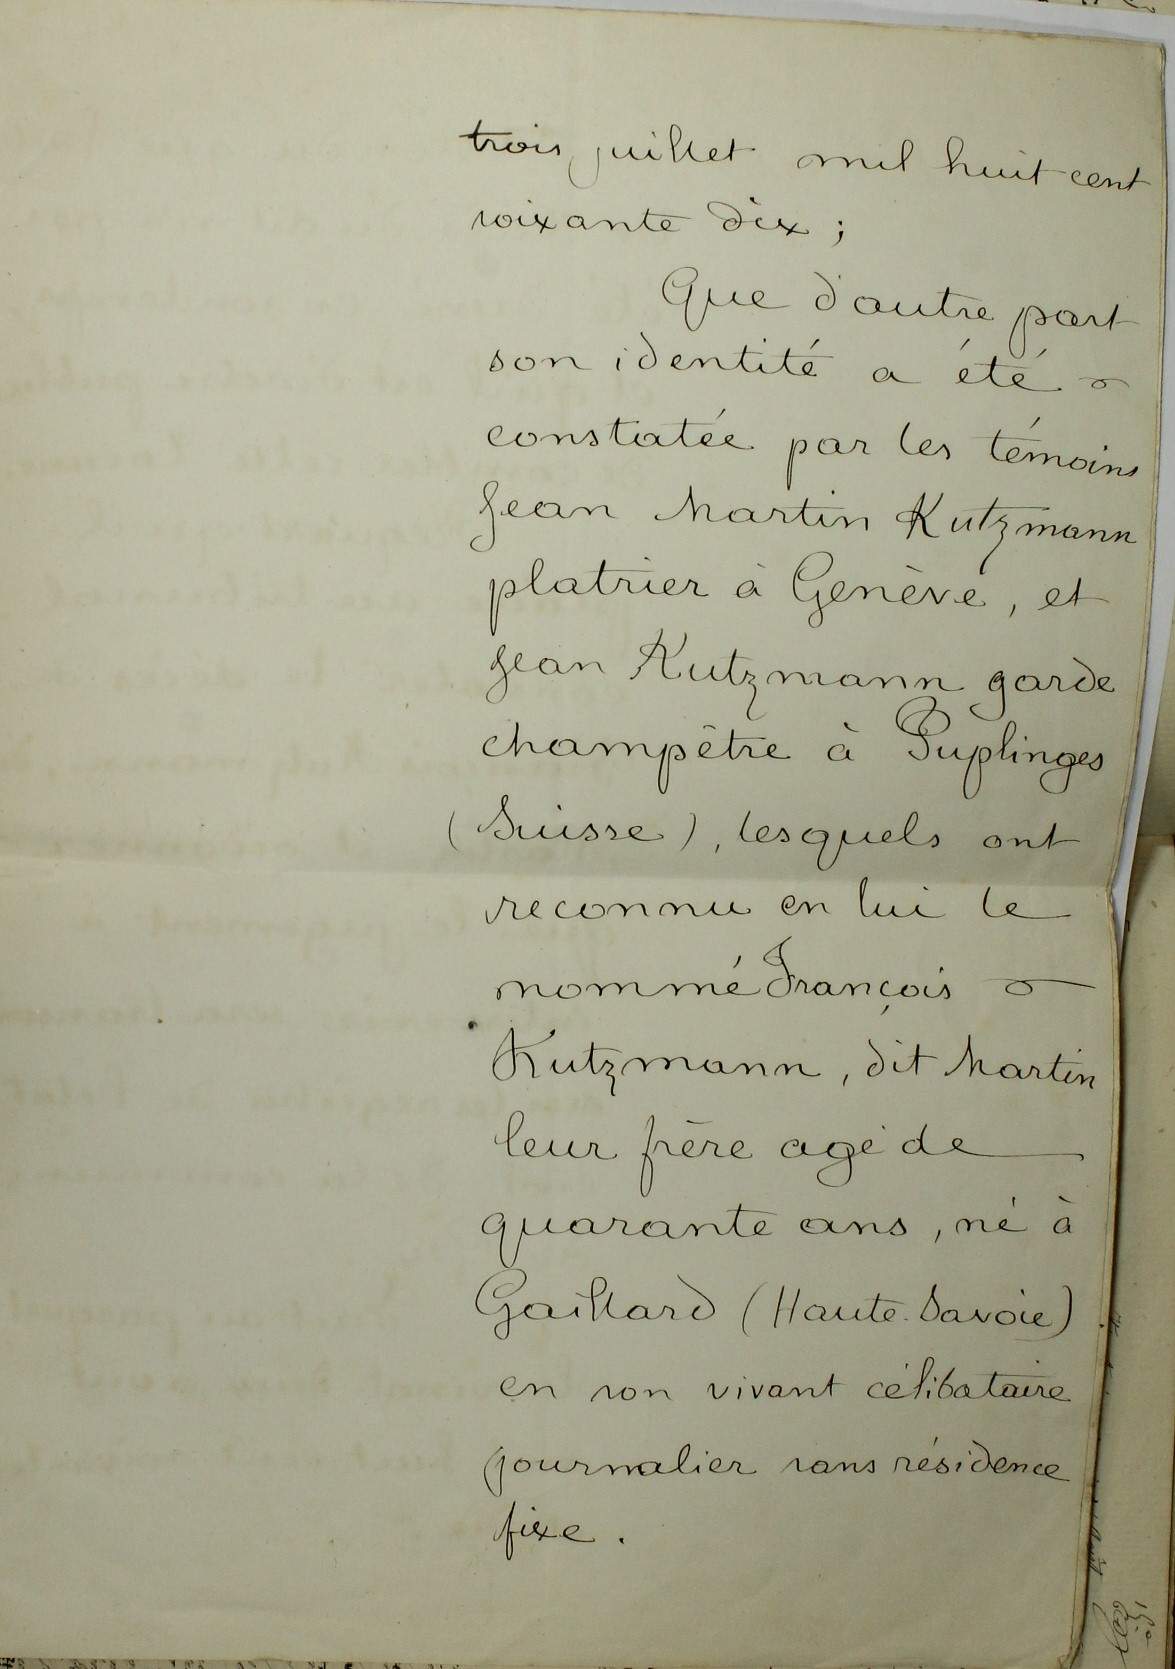 trois juillet mil huit cent
soixante dix ;
Que d'autre part
son identité a été
constatée par les témoins
Jean Martin Kutzmann
platrier à Genève, et
Jean Kutzmann garde
champêtre à Puplinges
(Suisse), lesquels ont
reconnu en lui le
nommé François
Kutzmann, dit Martin
leur frère agé de
quarante ans, né à
Gaillard (Haute-Savoie)
en son vivant célibataire
journalier sans résidence
fixe.